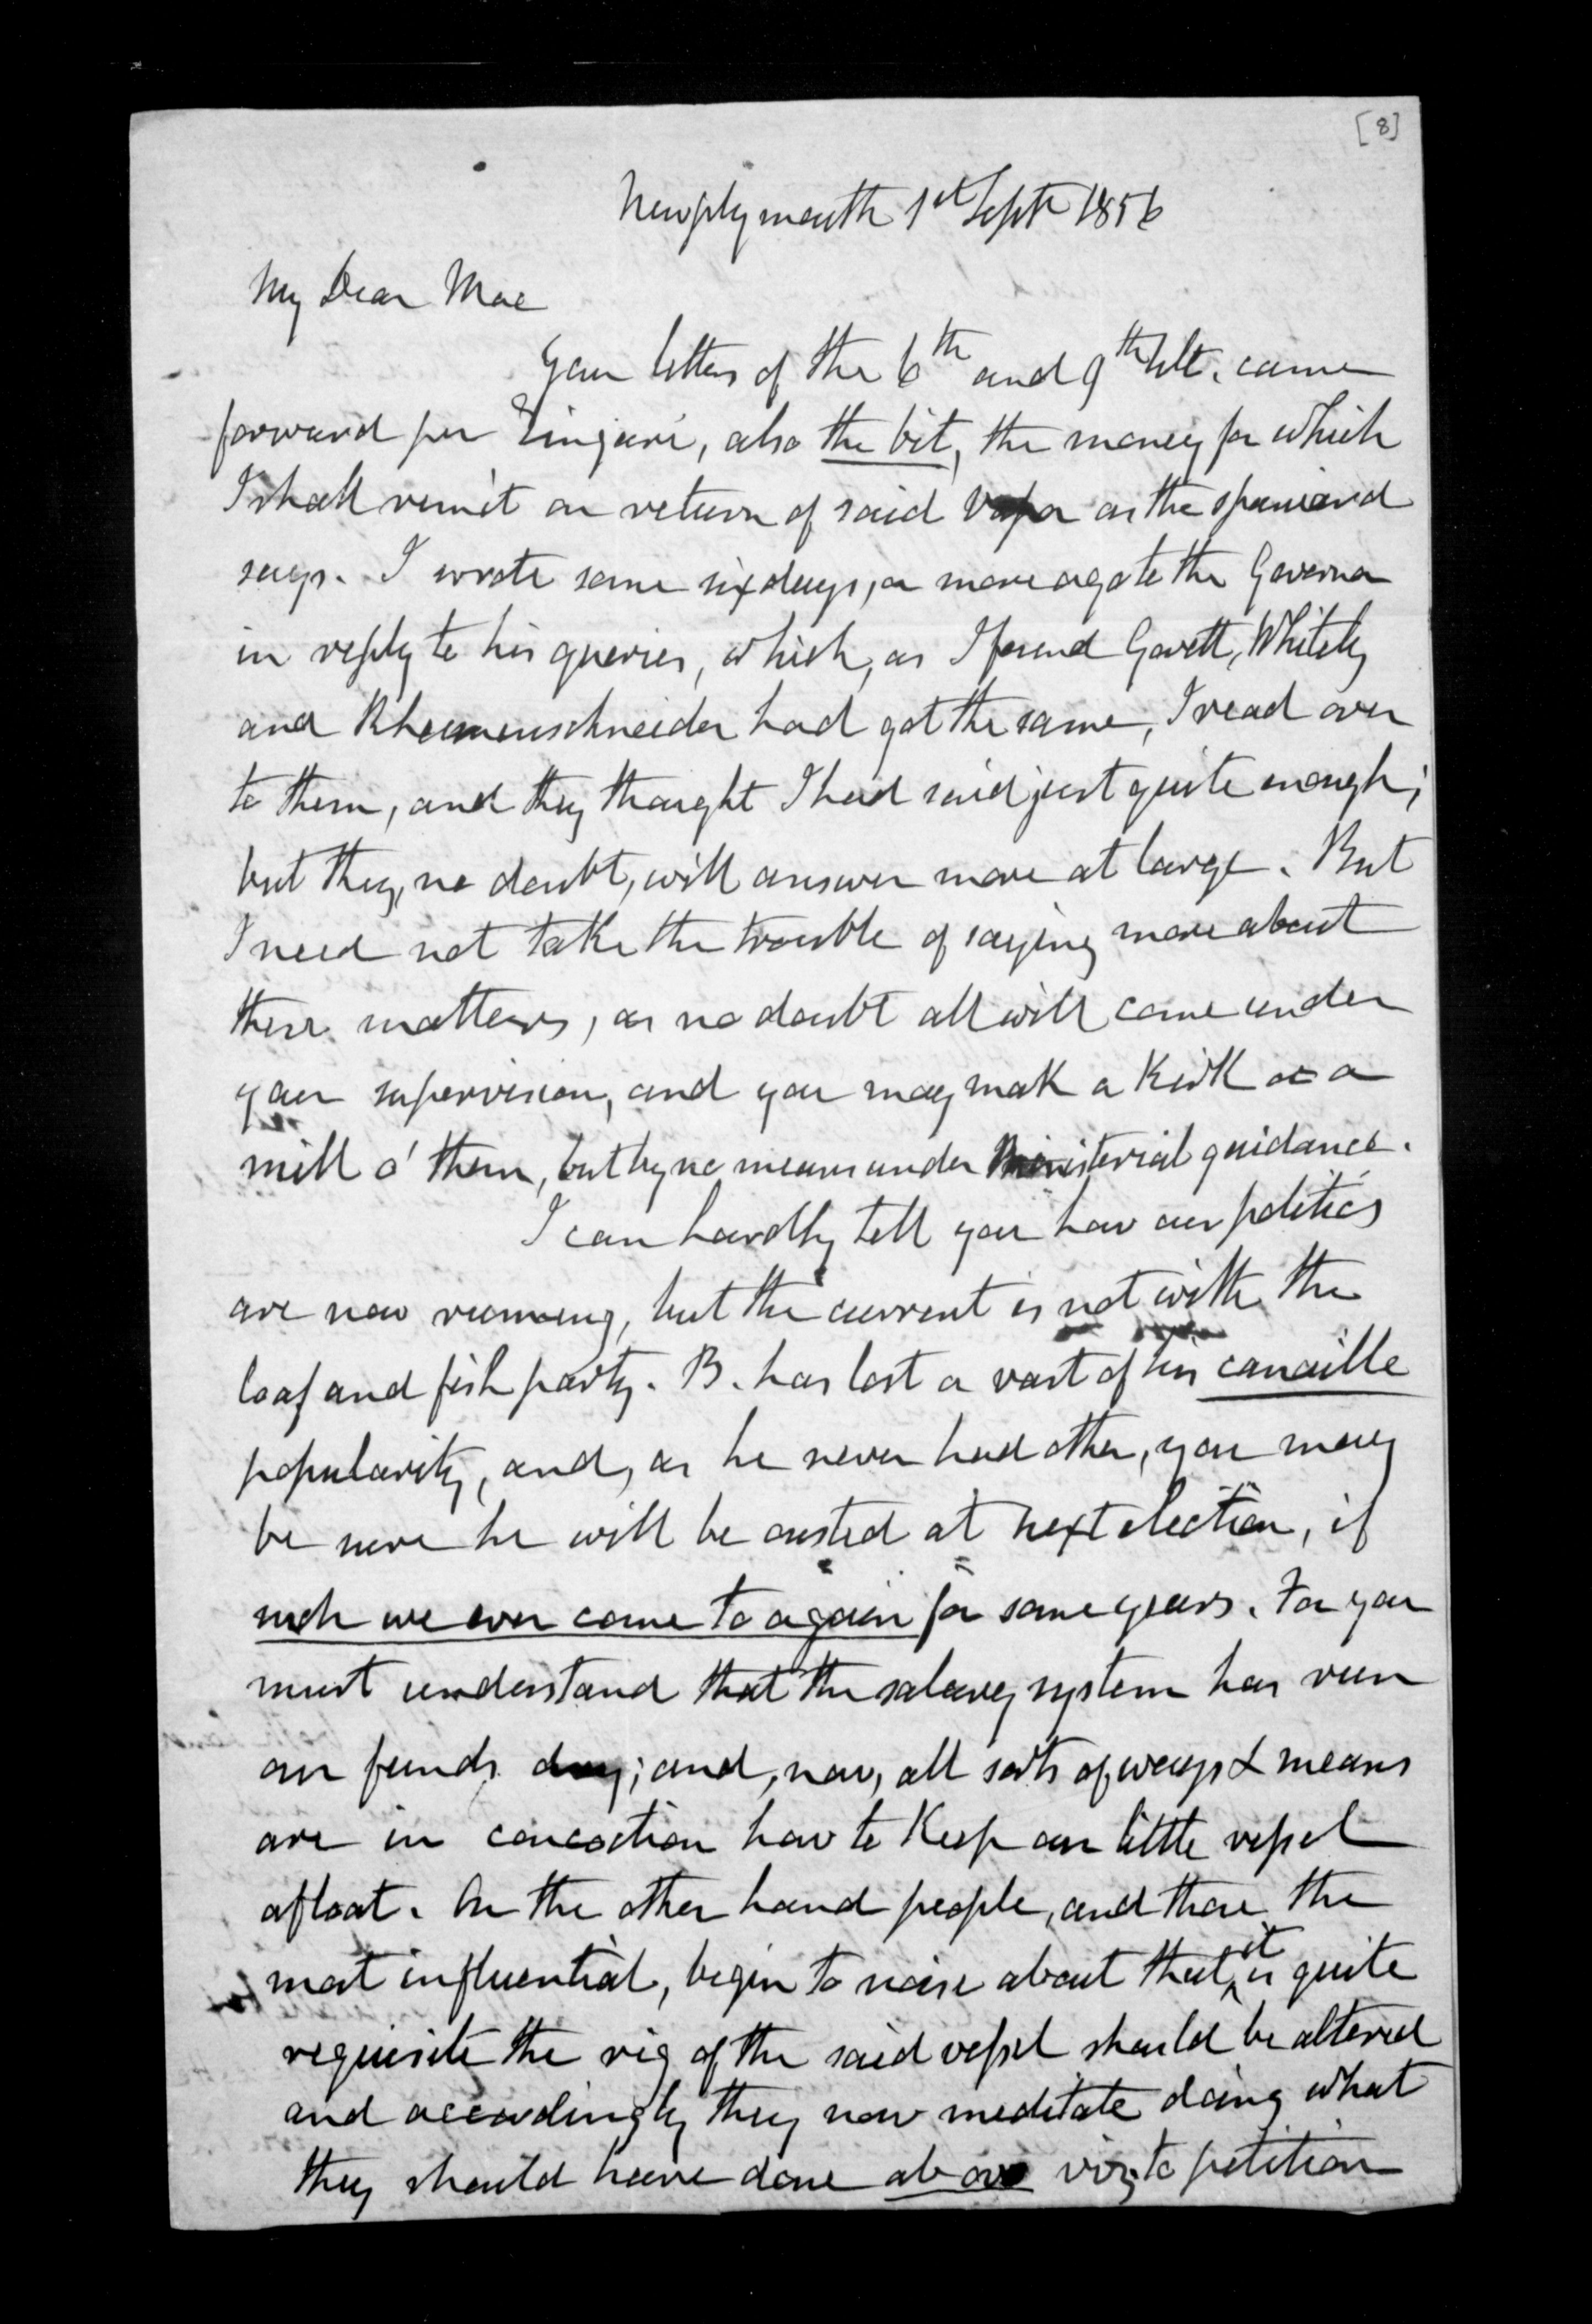 [8]
Newplymouth 1st Septr 1856
My Dear Mac
Your letters of the 6th and 9th Ult. came
forward per Zingari, also the bit, the money for which
I shall remit on return of said Vapor as the spaniard
says. I wrote some six days, or more ago to the Governor
in reply to his queries, which, as I found Govett, Whitely
and Rheimenschneider had got the same, I read over
to them, and they thought I had said just quite enough;
but they, no doubt, will answer more at large. But
I need not take the trouble of saying more about
these matters, as no doubt all will come under
your supervision, and you may mak a Kirk or a
mill o' them, but by no means under Ministerial guidance.
I can hardly tell you how our politics
are now running, but the current is not with the
loaf and fish party. B. has lost a vast of his canaille
popularity, and, as he never had other, you may
be sure he will be ousted at next election, if
such we ever come to again for some years. For you
must understand that the salary system has run
our funds dry; and, now, all sorts of ways & means
are in concoction how to Keep our little vessel
afloat. On the other hand people, and those the
most influential, begin to noise about that it is quite
requisite the rig of the said vessel should be altered
and accordingly they now meditate doing what
they should have done above viz. to petition